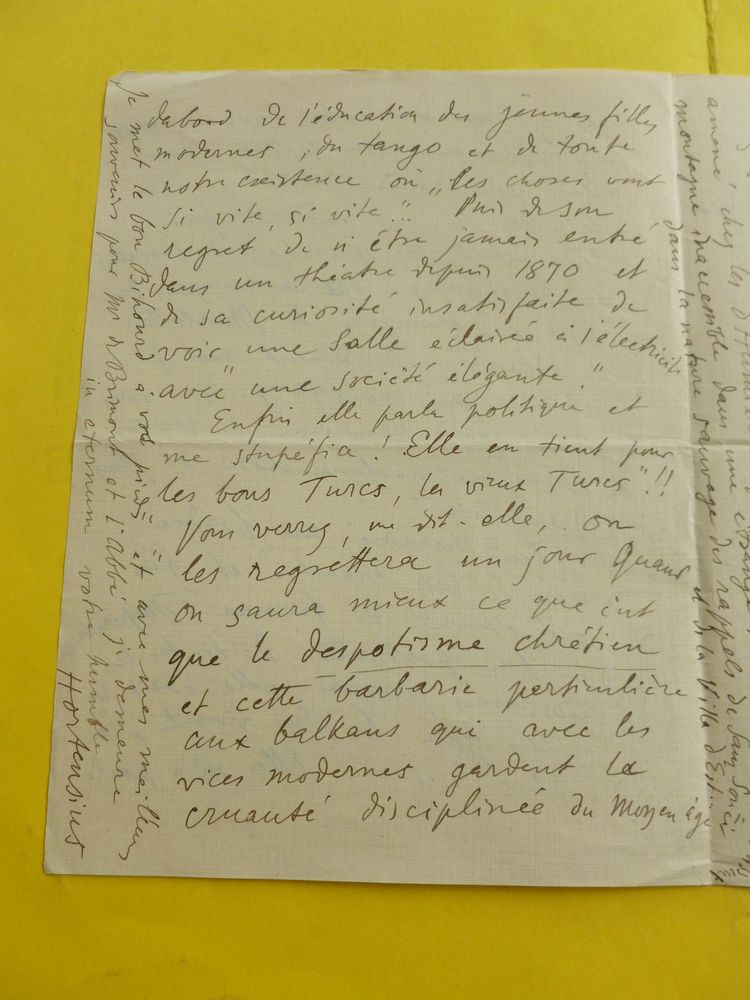 dabord de l'éducation des jeunes filles
modernes, du tango et de toute
notre existence où „les choses vont
si vite, si vite"!. Puis de son
regret de n'être jamais entré
dans un théâtre depuis 1870 et
de sa curiosité insatisfaite de
voir une salle éclairée à l'électricité
avec "une société élégante."
Enfin elle parle politique et
me stupéfia! Elle en tient pour
les bons Turcs, les vieux Turcs"!!
Vous verrez, me dit-elle, on
les regrettera un jour Quand
on saura mieux ce que c'est
que le despotisme chrétien
et cette barbarie perticulière
aux balkans qui avec les
vices modernes gardent la
cruauté disciplinée du Moyen âge
Je met le bon Bihourd a vos pieds et avec mes meilleurs
souvenirs pour Mr de Brimont et l'Abbé je demeure
in eternum votre humble
Hortensius
amène, chez les
montagne inaccessible dans une étrange
dans la nature sauvage des rappels de Sans Souci
et de la Villa d'Est